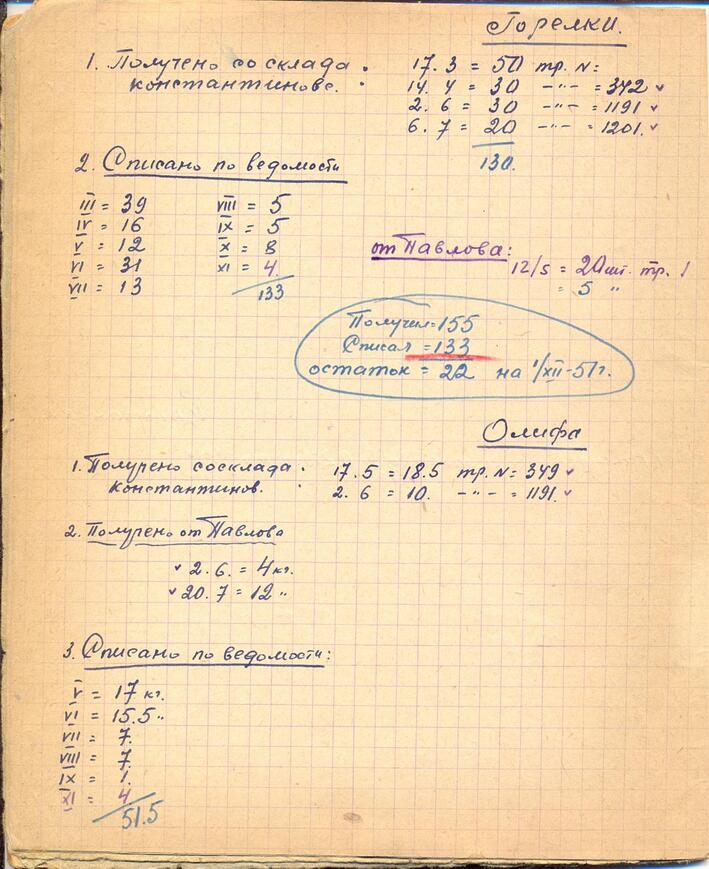 Горелки.
1. Получено со склада • 17.3 = 50 тр. N:
константинове. • 14.4 = 30 -"- = 342 ✓
2.6 = 30 -"- = 1191 ✓
6.7 = 20 -"- = 1201. ✓
130.
2. Списано по ведомости
III = 39 VIII = 5
IV = 16 IX = 5
V = 12 X = 8
VI = 31 XI = 4.
VII = 13 133
от Павлова:
12/5 = 20 шт. тр. 1
= 5 "
Получил = 155
Списал = 133
остаток = 22 на 1/XII-51г.
Олифа
1. Получено со склада • 17.5 = 18.5 тр. N = 349 ✓
константинов. • 2.6 = 10. -"- = 1191. ✓
2. Получено от Павлова
✓ 2.6. = 4 кг.
✓ 20.7 = 12 "
3. Списано по ведомости:
V = 17 кг.
VI = 15.5 "
VII = 7.
VIII = 7.
IX = 1.
XI = 4
51.5